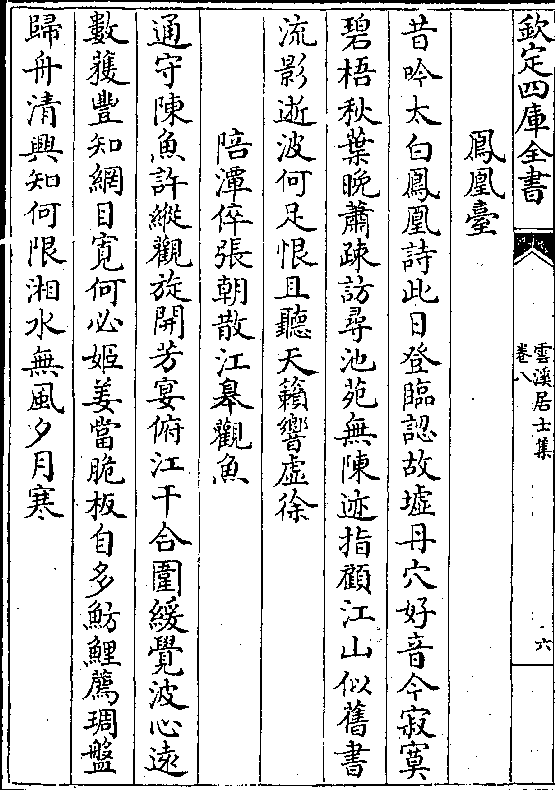 欽定四庫全書
雲溪居士集
卷八
六
鳳凰臺
昔吟太白鳳凰詩此日登臨認故墟丹穴好音今寂寞
碧梧秋葉晚蕭疎訪尋池苑無陳迹指顧江山似舊書
流影逝波何足恨且聽天籟響虛徐
陪潭倅張朝散江臯觀魚
通守陳魚許縱觀旋開芳宴俯江干合圍緩覺波心遠
數獲豐知網目寛何必姬姜當脆板自多魴鯉薦琱盤
歸舟清興知何限湘水無風夕月寒